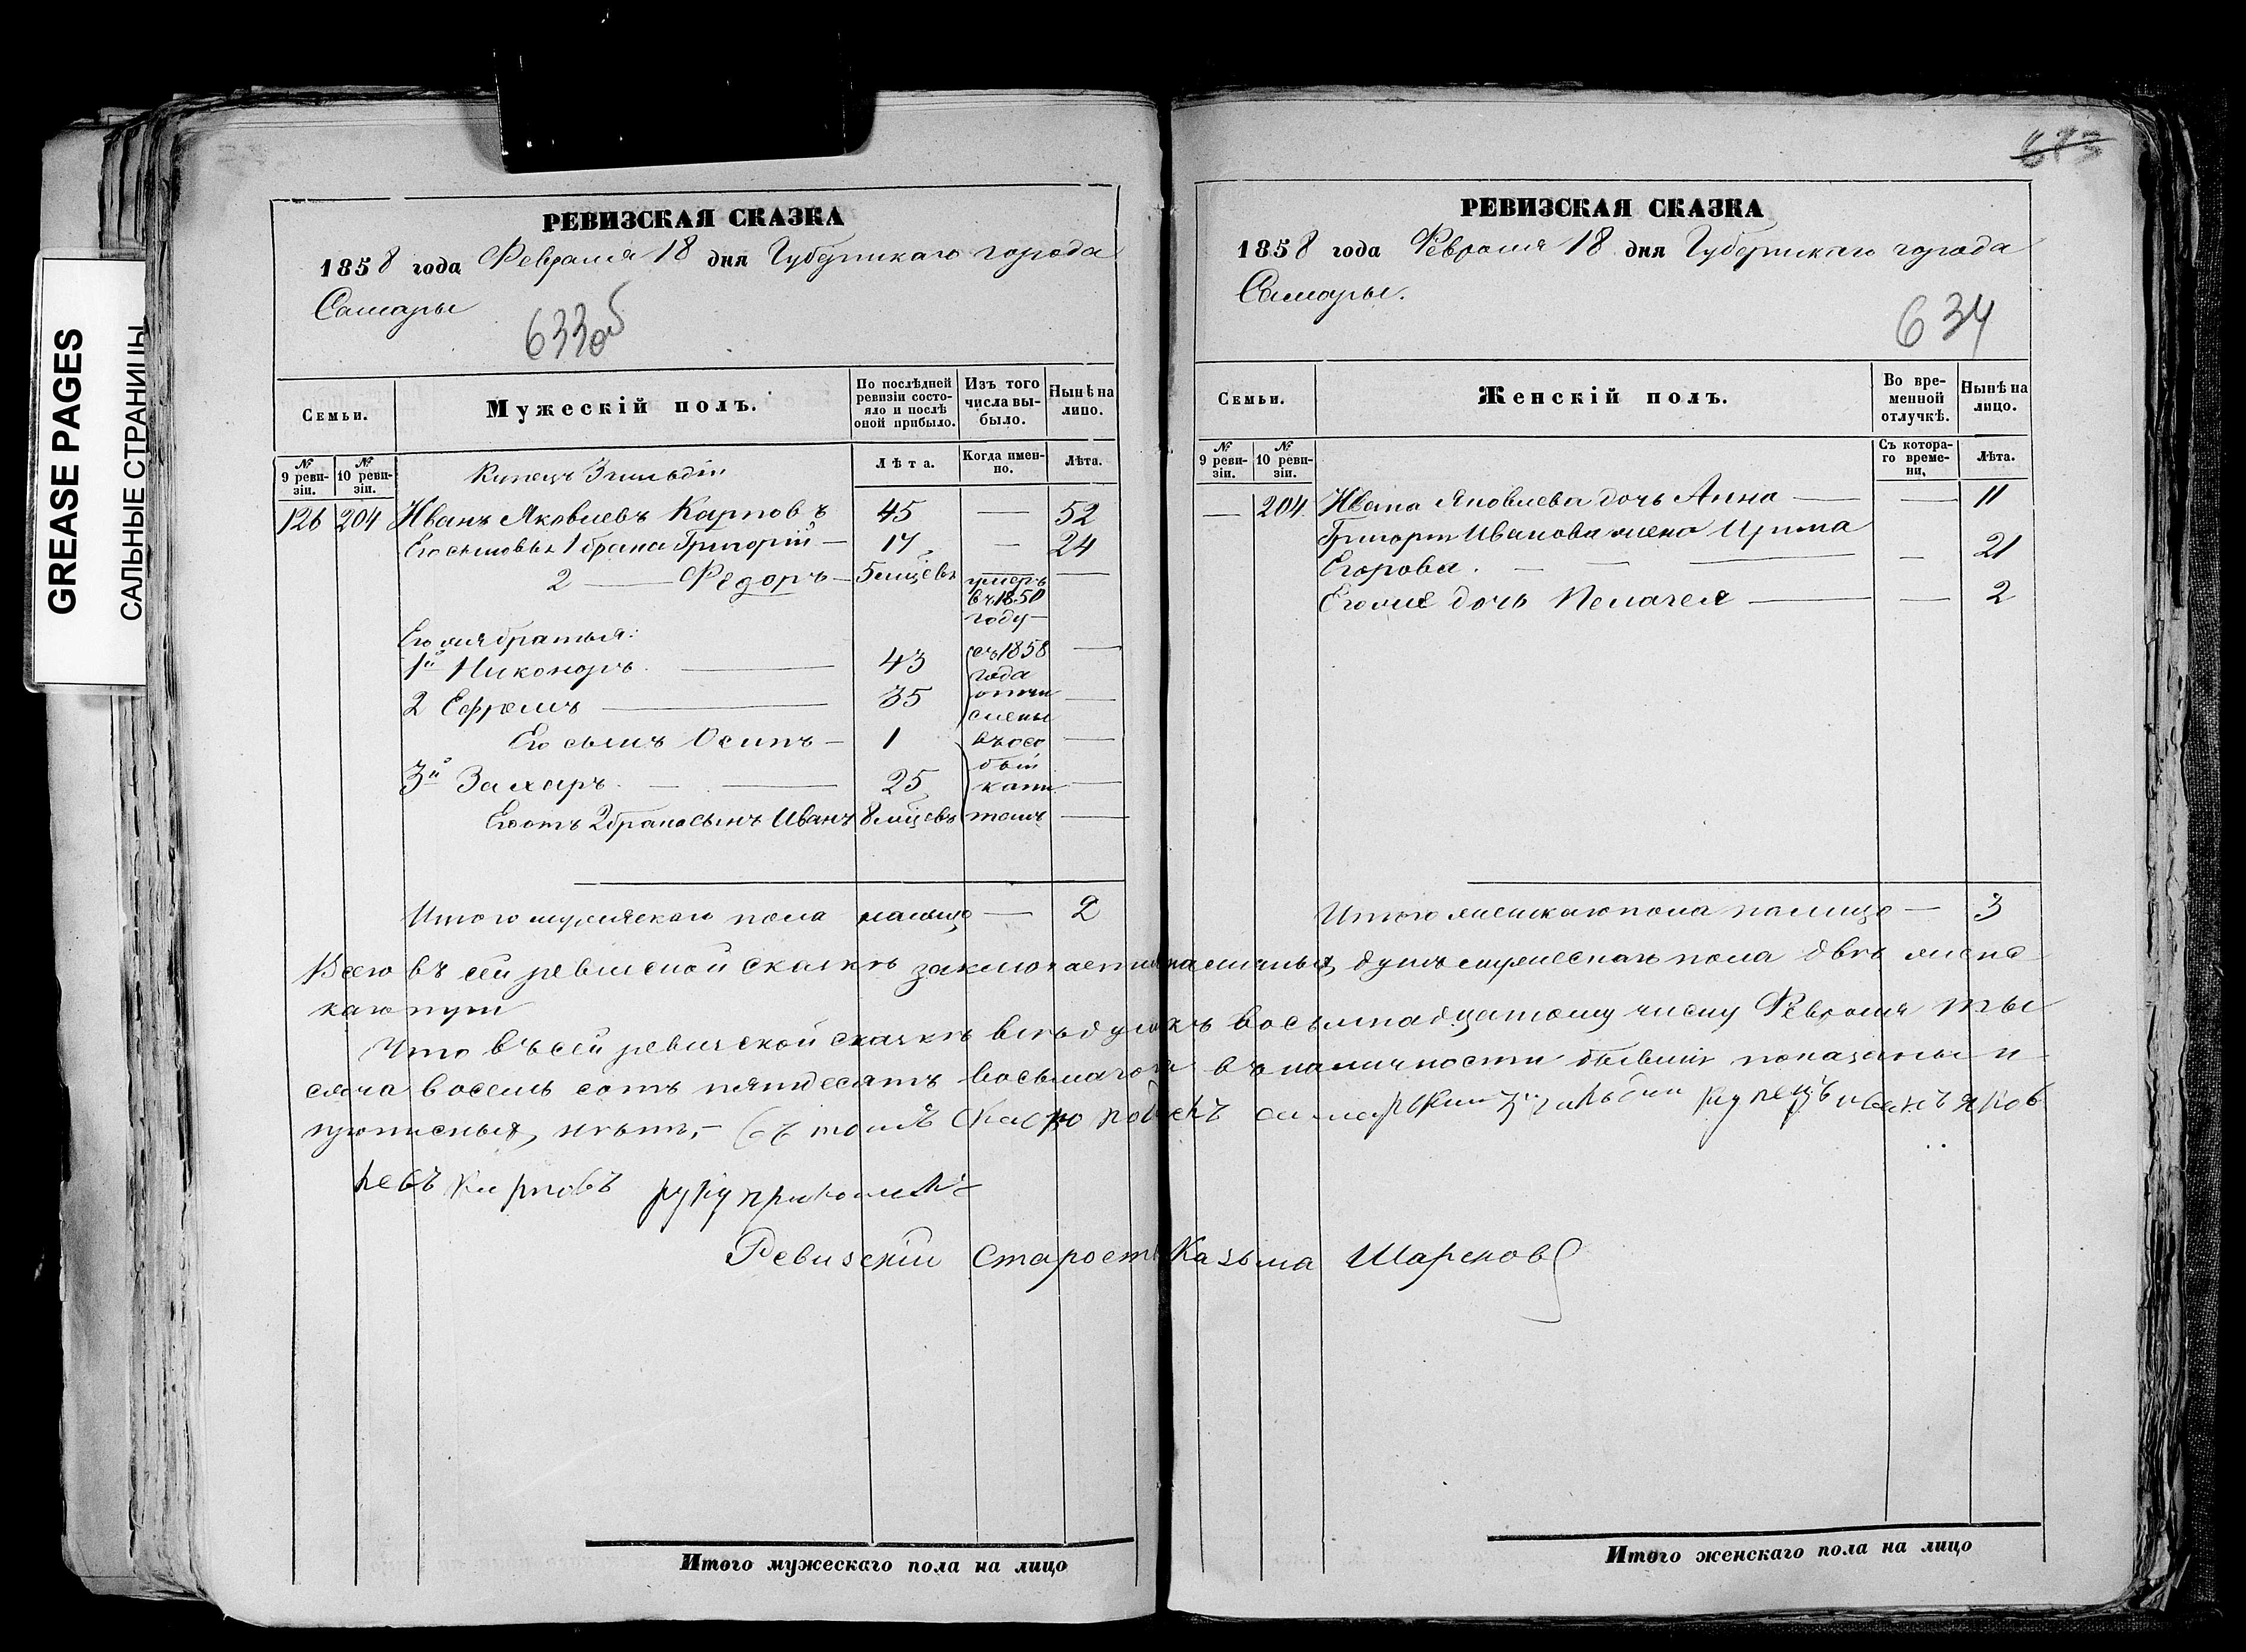 GREASE PAGES
САЛЬНЫЕ СТРАНИЦЫ
РЕВИЗСКАЯ СКАЗКА
1858 года Февраля 18 дня Губернскаго города
Самары
633об
Семьи.
Мужескій полъ.
По послѣдней ревизіи состояло и послѣ оной прибыло.
Изъ того числа выбыло.
Нынѣ на лицо.
№ 9 ревизіи.
№ 10 ревизіи.
Купецъ 3 гильдіи
Лѣта.
Когда именно.
Лѣта.
126 204 Иванъ Яковлевъ Карповъ 45 — 52
Его сыновья 1 брака Григорій — 17 — 24
2 — Федоръ — 5 мцевъ умеръ въ 1850 году —
Его же братья:
1й Никоноръ — 43 съ 1858 года —
2 Ефремъ — 35 отчислены —
Его сынъ Осипъ — 1 въ осо —
3й Захаръ — 25 бый капи —
Его отъ 2 брака сынъ Иванъ 8 мцевъ таль —
Итого мужескаго пола налицо — 2
673
РЕВИЗСКАЯ СКАЗКА
1858 года Февраля 18 дня Губернскаго города
Самары.
634
Семьи.
Женскій полъ.
Во временной отлучкѣ.
Нынѣ на лицо.
№ 9 ревизіи.
№ 10 ревизіи.
Съ котораго времени.
Лѣта.
— 204 Ивана Яковлева дочь Анна — — 11
Григорія Иванова жена Ирина
Егорова. — — — — 21
Его же дочь Пелагея — — 2
Итого женскаго пола налицо — 3
Всего въ сей ревизской сказкѣ заключается наличныхъ душъ мужескаго пола двѣ женс
каго три
Что въ сей ревизской сказкѣ всѣ души къ восьмнадцатому числу Февраля ты
сяча восемь сотъ пятьдесятъ восьмаго года въ наличности бывшія показаны и
прописныхъ нѣтъ,— Къ сей самарский 3й гильдии купецъ иванъ яков
левъ карповъ руку приложилъ
Ревизский Староста Казьма Шарсковъ
Итого мужескаго пола на лицо
Итого женскаго пола на лицо